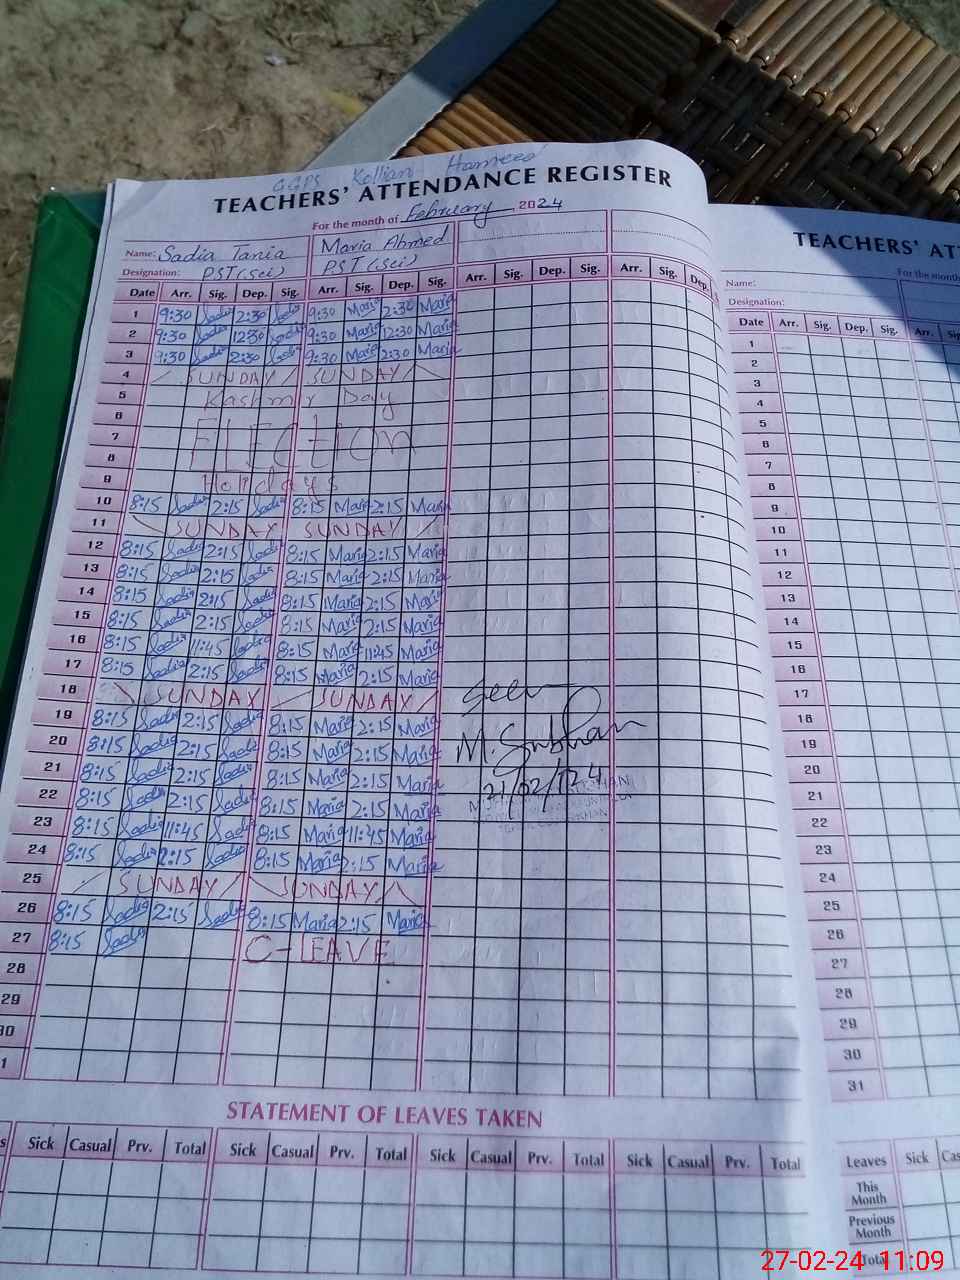 GGPS Kollian Hameed
TEACHERS' ATTENDANCE REGISTER
For the month of February, 2024
Name: Sadia Tania Maria Ahmed
Designation: PST(Sci) PST(Sci)
Date Arr. Sig. Dep. Sig. Arr. Sig. Dep. Sig. Arr. Sig. Dep. Sig. Arr. Sig. Dep.
1 9:30 Sadia 2:30 Sadia 9:30 Maria 2:30 Maria
2 9:30 Sadia 12:30 Sadia 9:30 Maria 12:30 Maria
3 9:30 Sadia 2:30 Sadia 9:30 Maria 2:30 Maria
4 SUNDAY SUNDAY
5 Kashmir Day
6
7 ELECtION
8
9 Holidays
10 8:15 Sadia 2:15 Sadia 8:15 Maria 2:15 Maria
11 SUNDAY SUNDAY
12 8:15 Sadia 2:15 Sadia 8:15 Maria 2:15 Maria
13 8:15 Sadia 2:15 Sadia 8:15 Maria 2:15 Maria
14 8:15 Sadia 2:15 Sadia 8:15 Maria 2:15 Maria
15 8:15 Sadia 2:15 Sadia 8:15 Maria 2:15 Maria
16 8:15 Sadia 11:45 Sadia 8:15 Maria 11:45 Maria
17 8:15 Sadia 2:15 Sadia 8:15 Maria 2:15 Maria
18 SUNDAY SUNDAY
19 8:15 Sadia 2:15 Sadia 8:15 Maria 2:15 Maria
20 8:15 Sadia 2:15 Sadia 8:15 Maria 2:15 Maria
21 8:15 Sadia 2:15 Sadia 8:15 Maria 2:15 Maria
22 8:15 Sadia 2:15 Sadia 8:15 Maria 2:15 Maria
23 8:15 Sadia 11:45 Sadia 8:15 Maria 11:45 Maria
24 8:15 Sadia 2:15 Sadia 8:15 Maria 2:15 Maria
25 SUNDAY SUNDAY
26 8:15 Sadia 2:15 Sadia 8:15 Maria 2:15 Maria
27 8:15 Sadia C-LEAVE
28
29
30
1
Seen
M. Subhan
21/02/024
STATEMENT OF LEAVES TAKEN
s Sick Casual Prv. Total Sick Casual Prv. Total Sick Casual Prv. Total Sick Casual Prv. Total
TEACHERS' AT
For the month
Name:
Designation:
Date Arr. Sig. Dep. Sig. Arr. Sig.
1
2
3
4
5
6
7
8
9
10
11
12
13
14
15
16
17
18
19
20
21
22
23
24
25
26
27
28
29
30
31
Leaves Sick Cas
This Month
Previous Month
Total
27-02-24 11:09